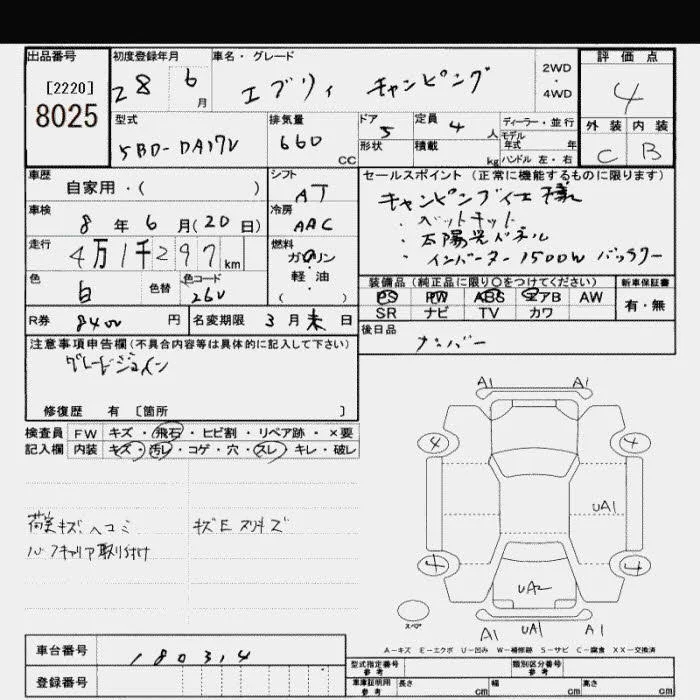 出品番号
[2220]
8025
初度登録年月
28 6月
車名・グレード
エブリィ キャンピング
2WD
・
4WD
評価点
4
外装 内装
C B
型式
5BD-DA17V
排気量
660
CC
ドア
5
形状
定員
4人
積載
kg
ディーラー・並行
モデル年式 年
ハンドル 左・右
車歴
自家用・( )
シフト
AT
車検
8年6月(20日)
冷房
AAC
走行
4万1千297km
燃料
ガソリン
・
軽油
( )
色
白
色替
色コード
26U
セールスポイント (正常に機能するものに限ります)
キャンピング仕様
・ベットキット
・太陽光パネル
・インバーター1500W バッテリー
装備品 (純正品に限り○をつけてください)
PS PW ABS エアB AW
SR ナビ TV カワ
新車保証書
有・無
R券
8400円
名変期限 3月末日
後日品
ナンバー
注意事項申告欄(不具合内容等は具体的に記入して下さい)
修復歴 有 〔箇所 〕
検査員 FW キズ・飛石・ヒビ割・リペア跡・×要
記入欄 内装 キズ・汚レ・コゲ・穴・スレ・キレ・破レ
荷室キズ ヘコミ
キズE スリキズ
ルーフキャリア取り付け
A1 A1
4 4
UA1
4 4
UA2
スペア
A1 UA1 A1
A-キズ E-エクボ U-凹み W-補修跡 S-サビ C-腐食 XX-交換済
車台番号
180314
登録番号
型式指定番号 参考
類別区分番号 参考
車庫証明用 参考
長さ cm 幅 cm 高さ cm